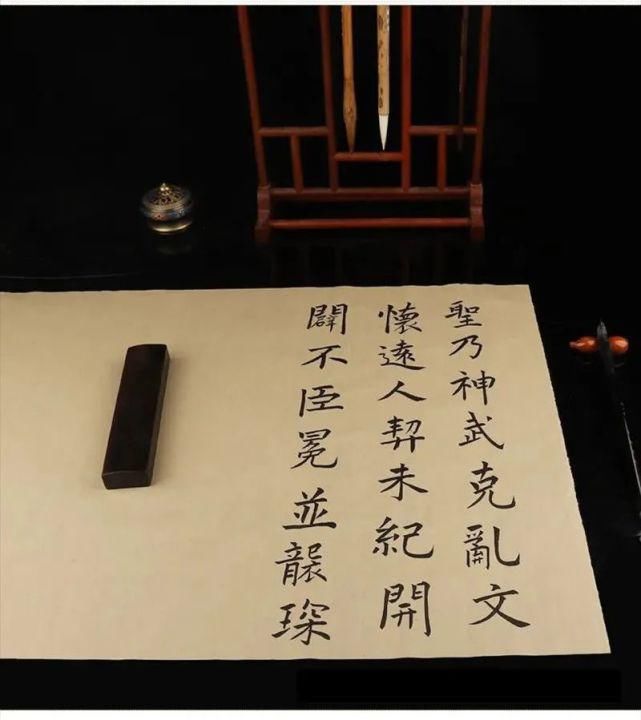 聖乃神武克亂文
懷遠人契未紀開
闢不臣冕並襲琛